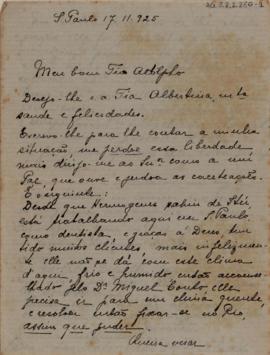 S. Paulo 17.11.925
Meu bom Tio Adolpho
Desejo-lhe e a Tia Albertina, mta
saude e felicidades.
Escrevo-lhe para lhe contar a minha
situação, me perdoe essa liberdade
mais dirijo-me ao Snr como a um
Pae que ouve e perdoa as
É o siguinte:
Desde que Hermogenes sahiu de
está trabalhando aqui em S. Paulo,
como dentista, e graças á Deus, tem
tido muitos clientes, mais infelizmen-
te elle não se dá com este clima
d'aqui, frio e humido então aconse-
lhado pelo Dr. Miguel Couto, elle
precisa ir para um clima quente,
e resolveu então fixar-se no Rio,
assim que puder.
Queira